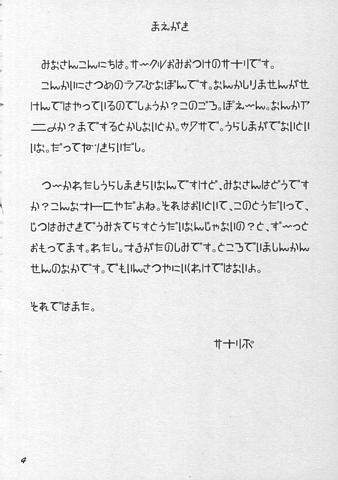 まえがき
みなさんこんにちは。サークルおみおつけのサナリです。
こんかいにさつめのラブひなぼんです。なんかしりませんがせ
けんではやっているのでしょうか？このごろ。ぼえ〜ん。なんかア
ニメか？までするとかしないとか。ウワサで。うらしまがでないとい
いな。だってヤツきらいだし。
つ〜かわたしうらしまきらいなんですけど、みなさんはどうです
か？こんなオトコやだよね。それはおいといて、このとうだいって、
じつはみさきでうみをてらすとうだいなんじゃないの？と、ず〜っと
おもってます。わたし。するがたのしみです。ところでいましんかん
せんのなかです。でもいんさつやにいくわけではないよ。
それではまた。
サナリ
4